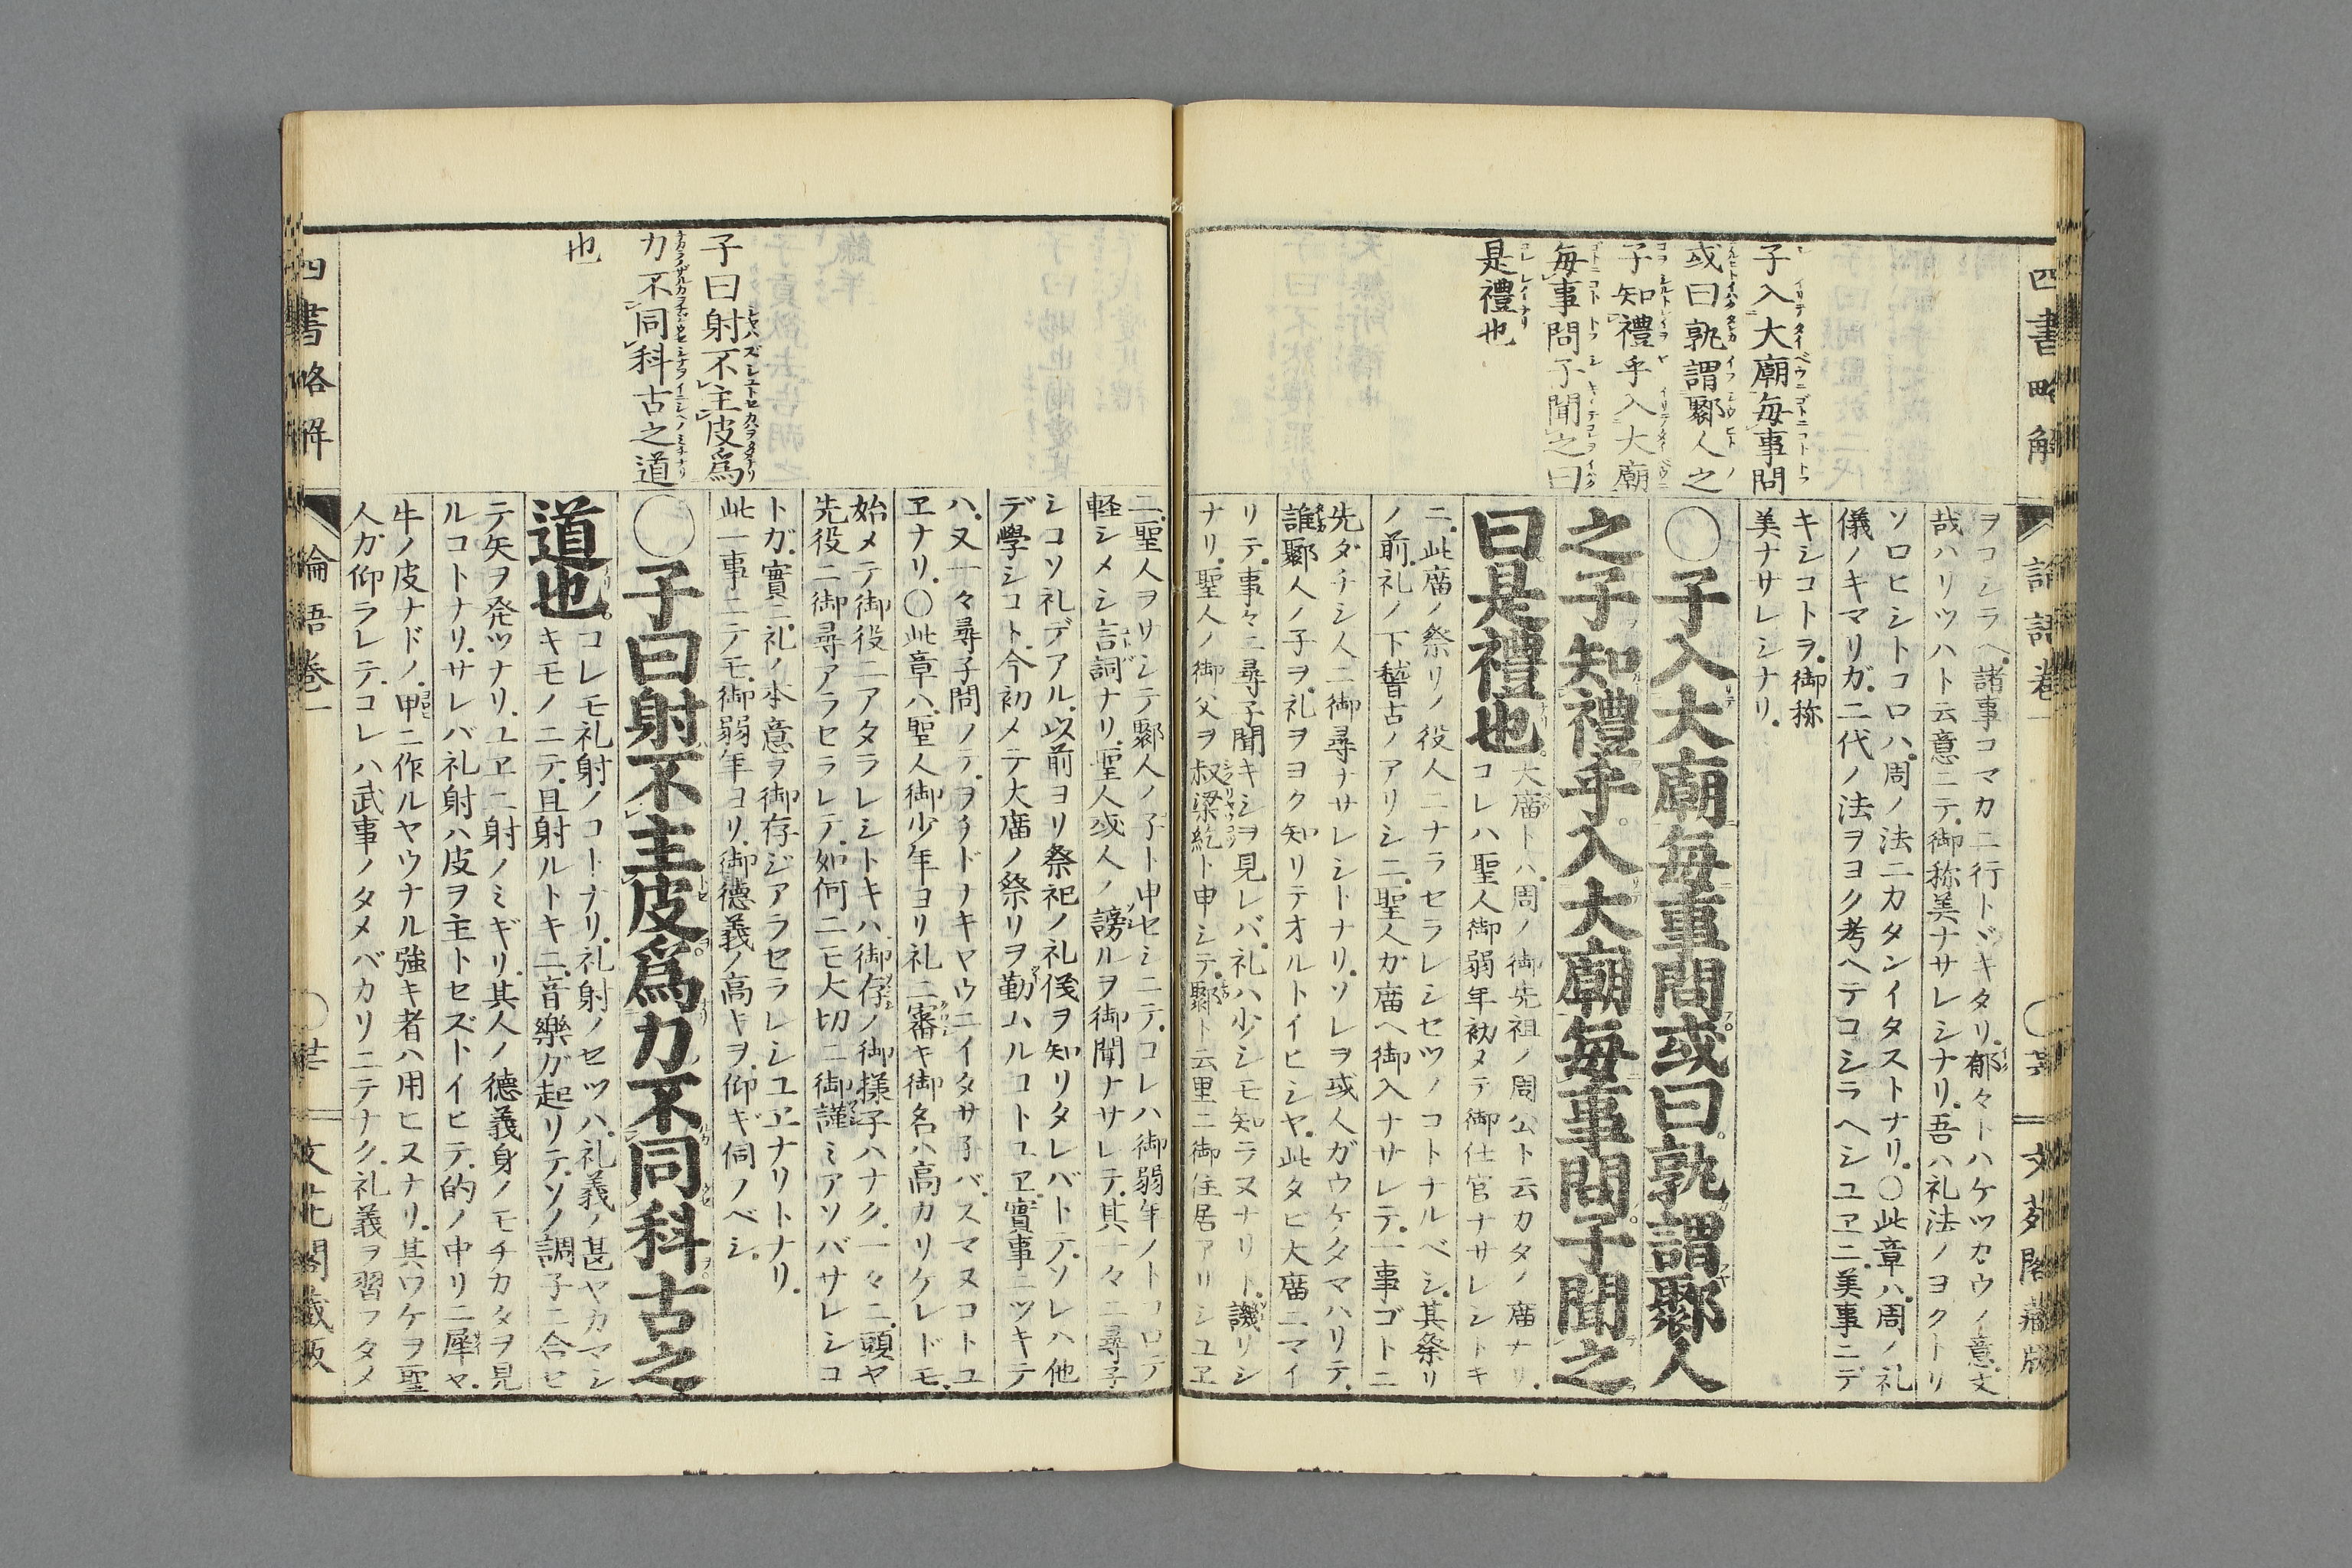 四書略解
論語卷一
文苑閣藏版
子入大廟毎事問
或曰孰謂鄹人之
子知禮乎入大廟
毎事問子聞之曰
是禮也
ヲコシラヘ諸事コマカニ行トヾキタリ郁々トハケツカウノ意文
哉ハリツハト云意ニテ御称美ナサレシナリ吾ハ礼法ノヨクトリ
ソロヒシトコロハ周ノ法ニカタンイタストナリ〇此章ハ周ノ礼
儀ノキマリガ二代ノ法ヲヨク考ヘテコシラヘシユヱニ美事ニデ
キシコトヲ御称
美ナサレシナリ
〇子入大廟毎事問或曰孰謂鄹人
之子知禮乎入大廟毎事問子聞之
曰是禮也
大廟トハ周ノ御先祖ノ周公ト云カタノ廟ナリ
コレハ聖人御弱年初メテ御仕官ナサレシトキ
ニ此廟ノ祭リノ役人ニナラセラレシセツノコトナルベシ其祭リ
ノ前礼ノ下稽古ノアリシニ聖人カ廟ヘ御入ナサレテ一事ゴトニ
先ダチシ人ニ御尋ナサレシトナリソレヲ或人ガウケタマハリテ
誰鄹人ノ子ヲ礼ヲヨク知リテオルトイヒシヤ此タビ大廟ニマイ
リテ事々ニ尋子聞キシヲ見レバ礼ハ少シモ知ラヌナリト譏リシ
ナリ聖人ノ御父ヲ叔梁紇ト申シテ鄹ト云里ニ御住居アリシユヱ
子曰射不主皮爲
力不同科古之道
也
ニ聖人ヲサシテ鄹人ノ子ト申セシニテコレハ御弱年ノトコロデ
軽シメシ言詞ナリ聖人或人ノ謗ルヲ御聞ナサレテ其一々ニ尋子
シコソ礼デアル以前ヨリ祭祀ノ礼儀ヲ知リタレバトテソレハ他
デ學シコト今初メテ大廟ノ祭リヲ勤ムルコトユヱ實事ニツキテ
ハ又一々尋子問ノテヲチドナキヤウニイタサ子バスマヌコトユ
ヱナリ〇此章ハ聖人御少年ヨリ礼ニ審キ御名ハ高カリケレドモ
始メテ御役ニアタラレシトキハ御存ノ御様子ハナク一々ニ頭ヤ
先役ニ御尋アラセラレテ如何ニモ大切ニ御謹ミアソバサレシコ
トガ實ニ礼ノ本意ヲ御存ジアラセラレシユヱナリトナリ
此一事ニテモ御弱年ヨリ御德義ノ高キヲ仰ギ伺ノベシ
〇子曰射不主皮爲力不同科古之
道也
コレモ礼射ノコトナリ礼射ノセツハ礼義ノ甚ヤカマシ
キモノニテ且射ルトキニ音樂ガ起リテソノ調子ニ合セ
テ矢ヲ発ツナリユヱニ射ノミギリ其人ノ德義身ノモチカタヲ見
ルコトナリサレバ礼射ハ皮ヲ主トセズトイヒテ的ノ中リニ犀ヤ
牛ノ皮ナドノ甲ニ作ルヤウナル強キ者ハ用ヒヌナリ其ワケヲ聖
人カ仰ラレテコレハ武事ノタメバカリニテナク礼義ヲ習フタメ
四書略解
論語卷一